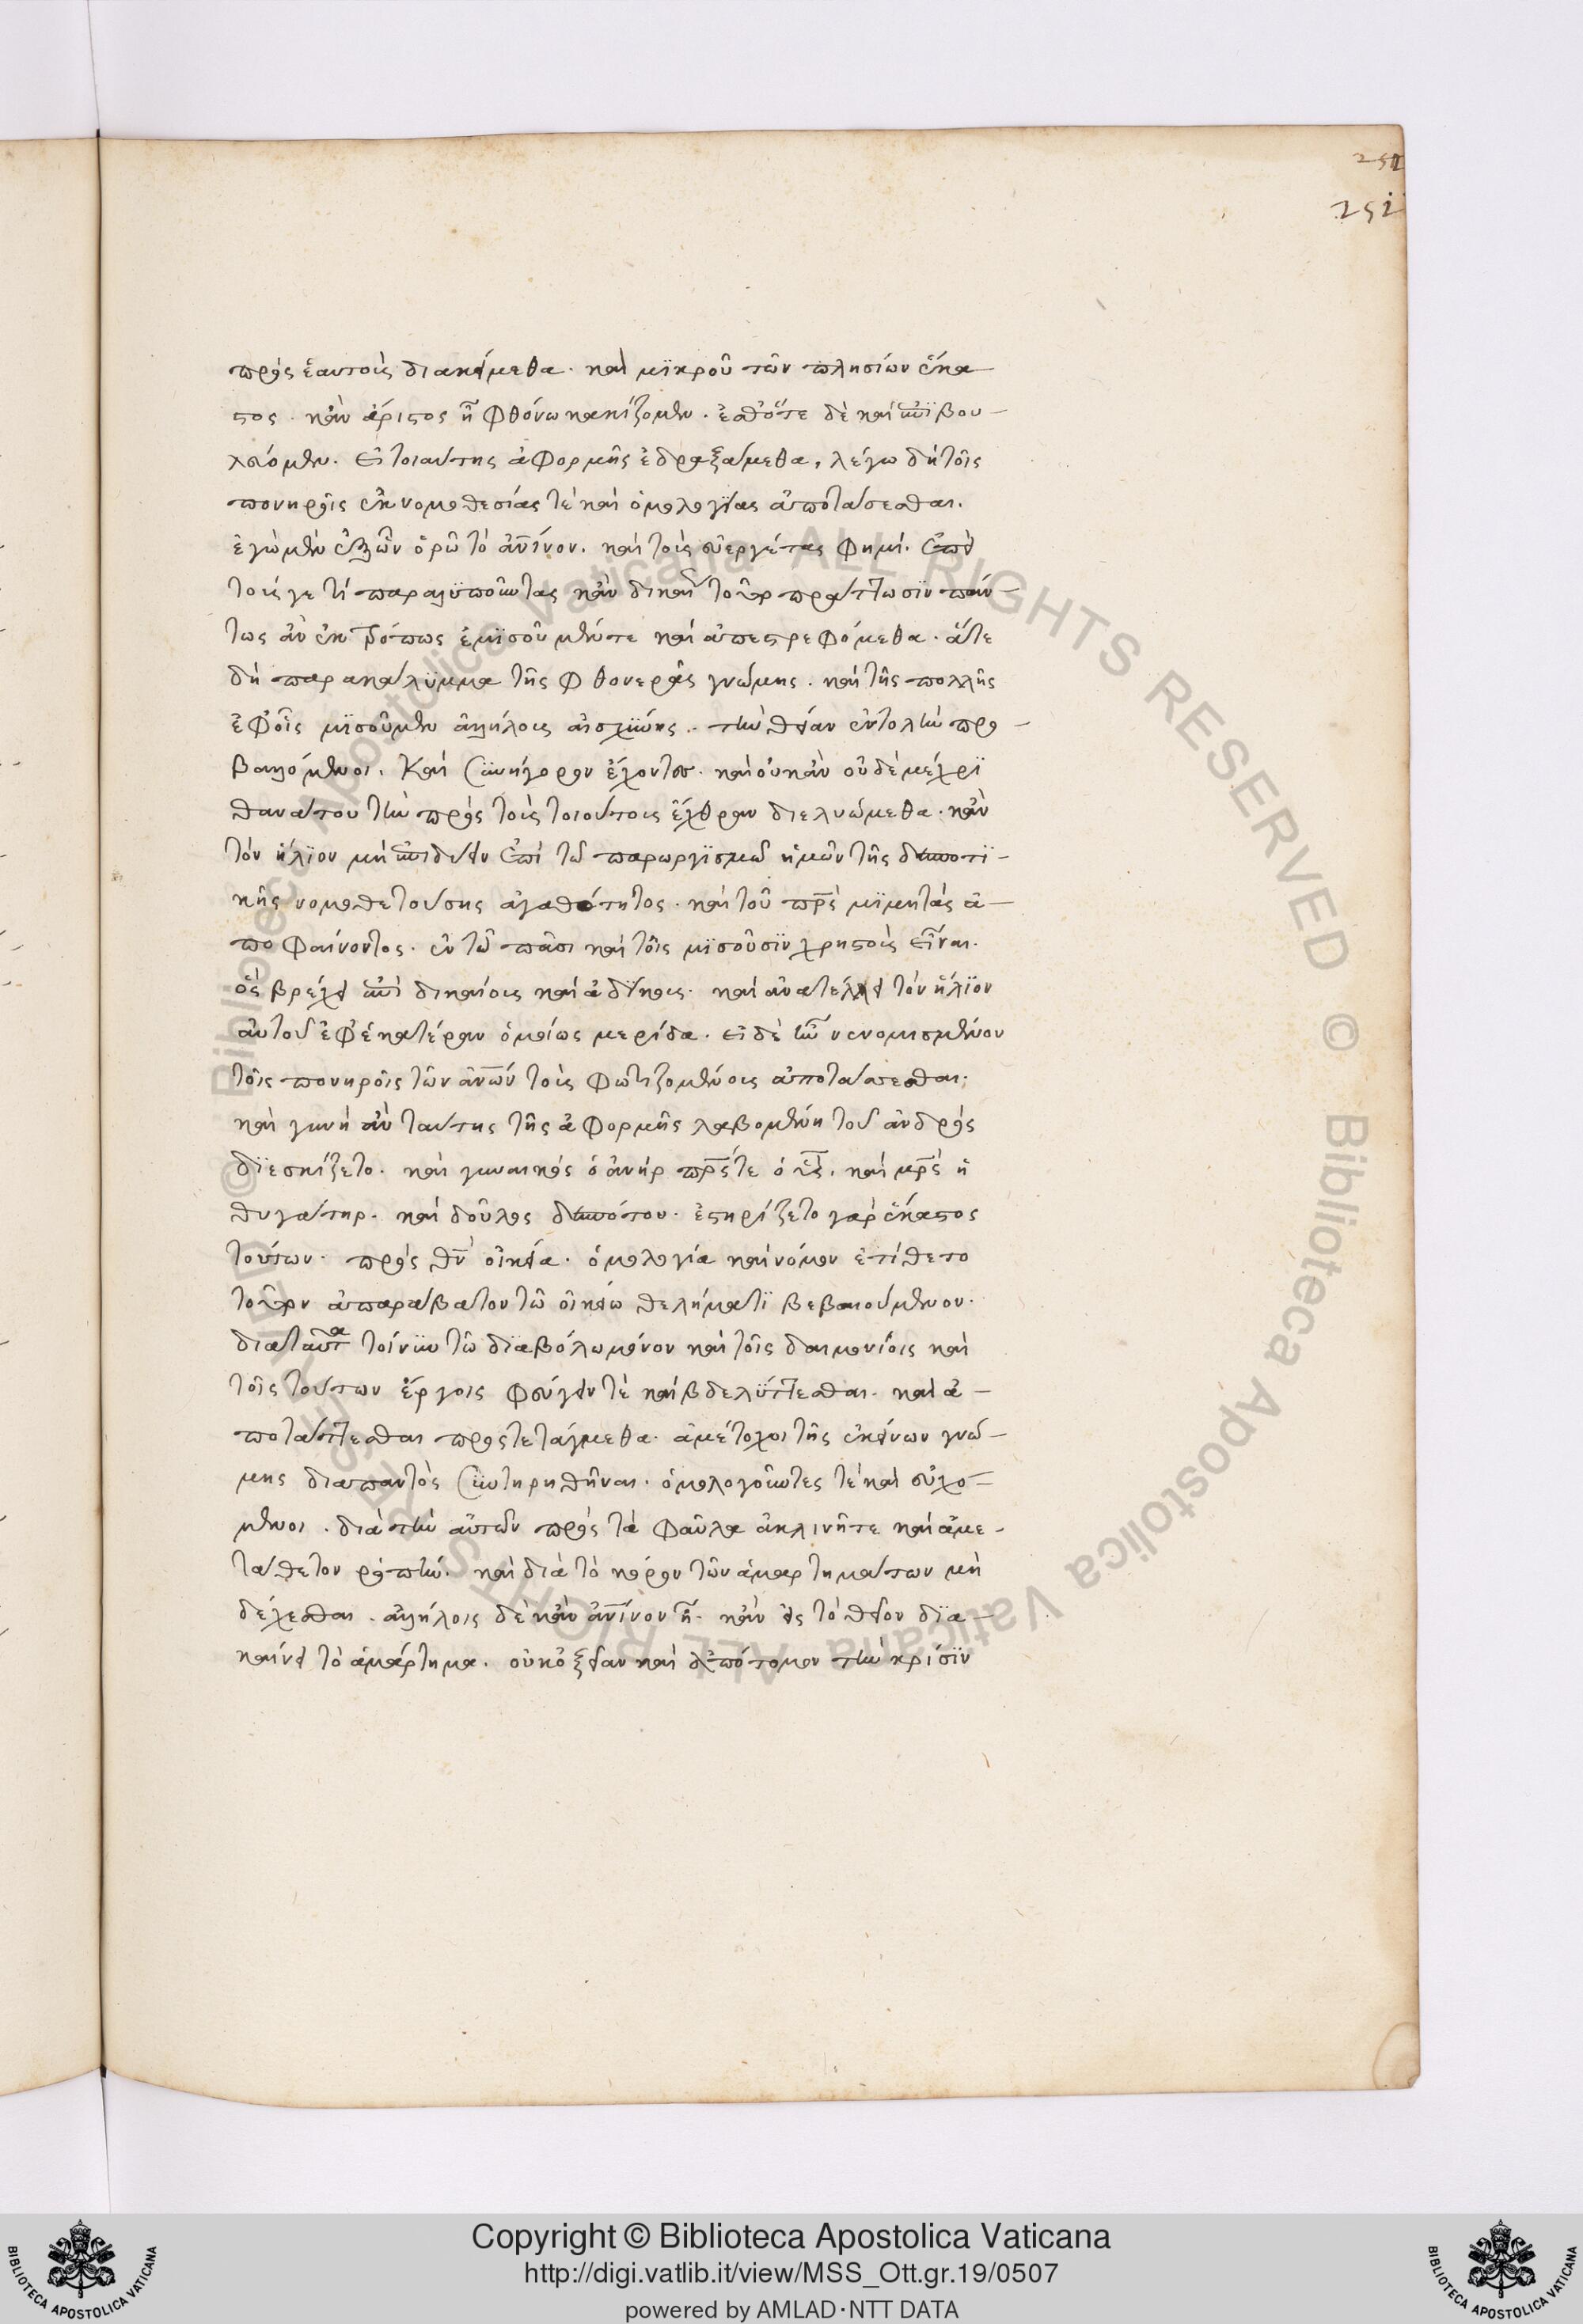 252
252
πρὸς ἑαυτοὺς διακείμεθα. καὶ μϊκροῦ τῶν πλησίων ἕκα
στος. κἂν ἄριστος ἦ φθόνω κακίζομεν. ἐσθότε δὲ καὶ ἐπϊβου-
λεύομεν. εἰ τοιαύτης ἀφορμῆς ἐδραξάμεθα, λέγω δὴ τοῖς
πονηροῖς ἐκ νομοθεσίας τὲ καὶ ὁμολογίας ἀποτάσεσθαι.
ἐγὼ μὲν ὁρῶ τὸ ἀνῖνον. καὶ τοὺς εὐεργέτας φημί. ἐπεὶ
τούς γε τί παραλϋποῦντας κἂν πράττωσϊν πάν-
τως ἂν ἐκτρόπως ἐμϊσοῦμέν τε καὶ ἀπεστρεφόμεθα. ἅτε
δὴ παρακάλϋμμα τῆς φθονερᾶς γνώμης. καὶ τῆς πολλῆς
ἐφοῖς μϊσοῦμεν ἀλλήλους αἰσχύνης. τὴν θείαν ἐντολὴν προ-
βαλλόμενοι. καὶ συνήγορον ἔχοντες. καὶ οὐκἂν οὐδὲ μέχρϊ
θανάτου τὴν πρὸς τοὺς τοιούτους ἔχθραν διελυώμεθα. κἂν
τὸν ἥλϊον μὴ ἐπιδύειν ἐπὶ τῶ παρωργϊσμῶ ἡμῶν τῆς δεσποτϊ-
κῆς νομοθετούσης ἀγαθότητος. καὶ τοῦ πρς μϊμητὰς ἀ-
ποφαίνοντος. ἐν τῶ πᾶσι καὶ τοῖς μϊσοῦσϊν χρηστοὺς εἶναι.
ὃς βρέχει ἐπὶ δικαίους καὶ ἀδίκους. καὶ ἀνατέλλει τὸν ἥλϊον
αὐτοῦ ἐφ ἑκατέραν ὁμοίως μερίδα. εἰ δὲ νενομισμένον
τοῖς πονηροῖς τῶν ἀνων τοὺς φωτιζομένους ἀποτάσεσθαι;
καὶ γυνὴ ἂν ταύτης τῆς ἀφορμῆς λαβομένη τοῦ ἀνδρὸς
δϊεσκίζετο. καὶ γυναικὸς ὁ ἀνήρ πρς τε ὁ υς. καὶ μρς ἡ
θυγάτηρ. καὶ δοῦλος δεσπότου. ἐστηρίζετο γὰρ ἕκαστος
τούτων. πρὸς θν οἰκεία. ὁμολογία καὶ νόμον ἐτίθετο
ἀπαράβατον τῶ οἰκείω θελήματϊ βεβαιούμενον.
διαταῦτα τοίνυν τῶ δϊαβόλω μόνον καὶ τοῖς δαιμονίοις καὶ
τοῖς τούτων ἔργοις φεύγειν τὲ καὶ βδελϋττεσθαι. καὶ ἀ-
ποτάττεσθαι προστετάγμεθα. ἀμέτοχοι τῆς ἐκείνων γνώ-
μης διαπαντὸς συντηρηθῆναι. ὁμολογοῦντες τὲ καὶ εὐχό-
μενοι. διὰ τὴν αὐτῶν πρὸς τὰ φαῦλα ἀκλινῆ τε καὶ ἀμε-
τάθετον ῥοπὴν. καὶ διὰ τὸ κόρον τῶν ἁμαρτημάτων μὴ
δέχεσθαι. ἀλλήλοις δὲ κἂν ἀνῖνον ἦ. κἂν εἰς τὸ θεῖον δϊα-
καίνει τὸ ἁμάρτημα. οὐκ ὀξεῖαν καὶ ἀπότομον τὴν κρίσϊν
Copyright © Biblioteca Apostolica Vaticana
http://digi.vatlib.it/view/MSS_Ott.gr.19/0507
powered by AMLAD·NTT DATA
BIBLIOTECA APOSTOLICA VATICANA
BIBLIOTECA APOSTOLICA VATICANA
© Biblioteca Apostolica Vaticana ALL RIGHTS RESERVED © Biblioteca Apostolica Vaticana ALL RIGHTS RESERVED